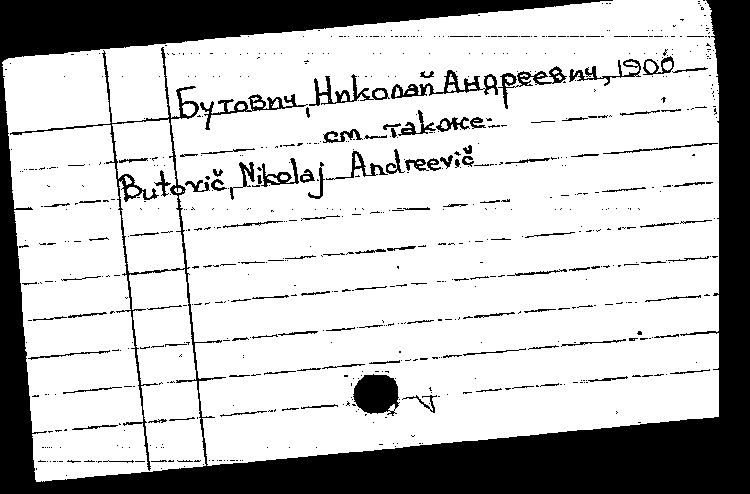 Бутович, Николай Андреевич, 1900
см. также:
Butovič, Nikolaj Andreevič